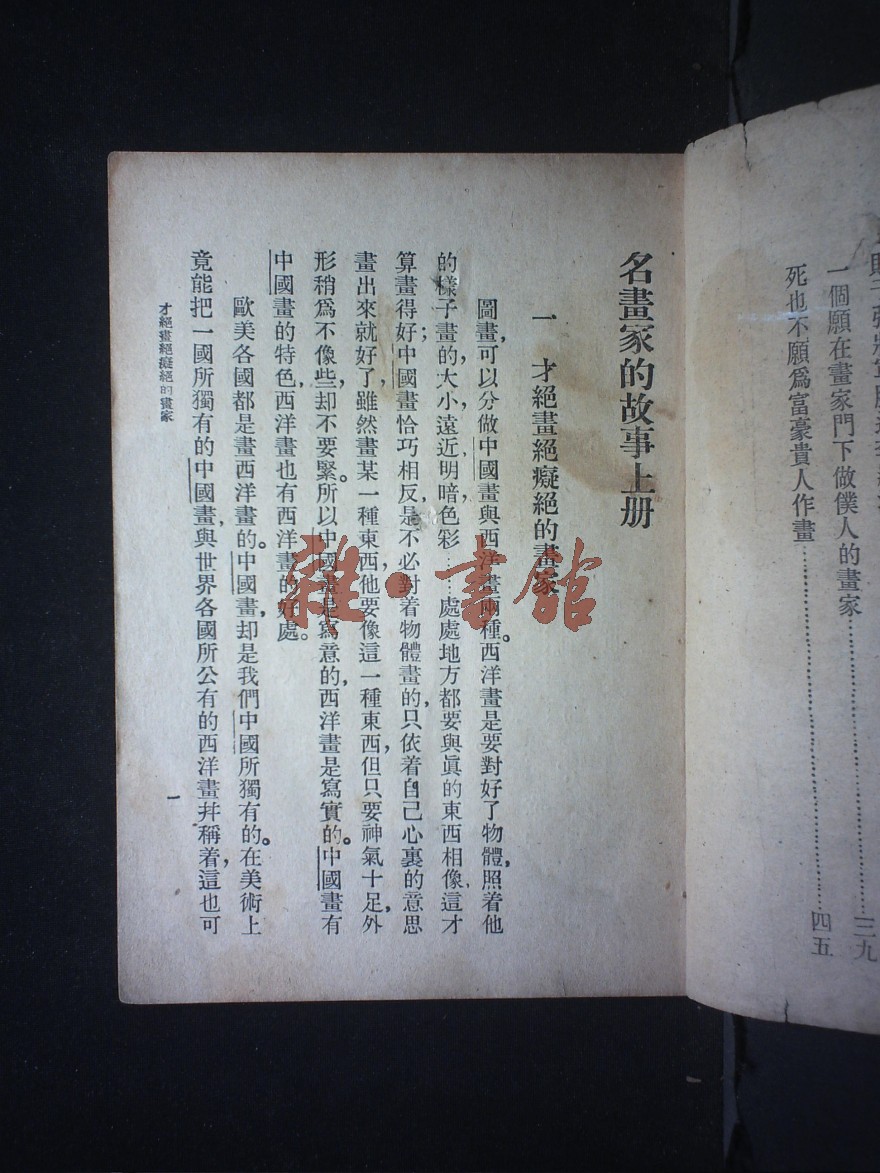 一個願在畫家門下做僕人的畫家……………………三九
死也不願爲富豪貴人作畫……………………四五
名畫家的故事上册
一 才絕畫絕癡絕的畫家
圖畫，可以分做中國畫與西洋畫兩種。西洋畫是要對好了物體，照着他
的樣子畫的；大小，遠近，明暗，色彩……處處地方都要與眞的東西相像，這才
算畫得好。中國畫恰巧相反，是不必對着物體畫的，只依着自己心裏的意思
畫出來就好了。雖然畫某一種東西，他要像這一種東西，但只要神氣十足，外
形稍爲不像些，却不要緊。所以中國畫是寫意的，西洋畫是寫實的。中國畫有
中國畫的特色，西洋畫也有西洋畫的好處。
歐美各國都是畫西洋畫的。中國畫，却是我們中國所獨有的。在美術上，
竟能把一國所獨有的中國畫，與世界各國所公有的西洋畫并稱着，這也可
才絕畫絕癡絕的畫家
一
雜·書館